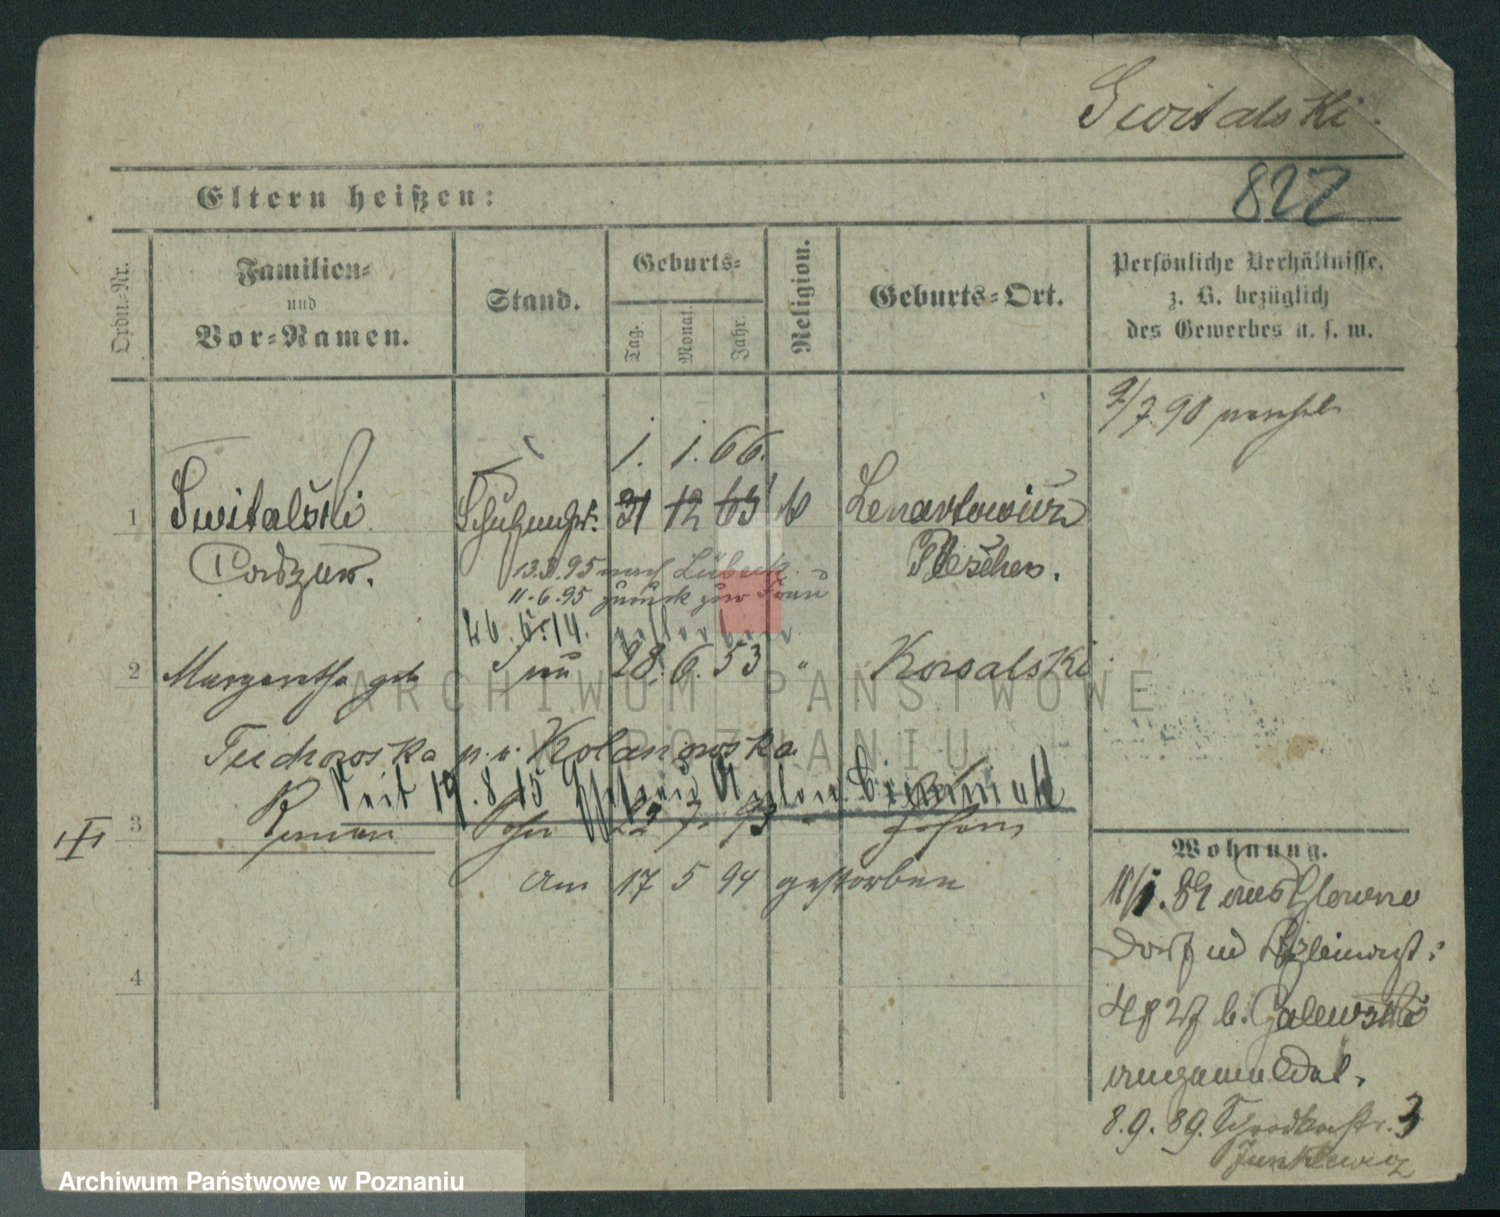 Switalski.
822
Eltern heißen:
Ordn.-Nr.
Familien-
und
Vor-Namen.
Stand.
Geburts-
Tag.
Monat.
Jahr.
Religion.
Geburts-Ort.
Persönliche Verhältnisse,
z. B. bezüglich
des Gewerbes u. s. w.
9/7 90
1. 1. 66.
1 Switalski 31 12 65 Lenartowicz
Pleschen.
13.3.95 nach Lübeck
11.6.95 zurück zur Frau
26.6.14. gestorben
2 Margaretha geb 28. 6. 53 " Kowalski
Tuchowska Kolanowska
Seit 19.8.15
3 Roman Sohn 22 7 93 " Posen
am 17 5 94 gestorben
4
Wohnung.
18/1. 89 aus Glowno
Dorf
b. Galewski
angemeldet.
8.9.89. Schrodkastr. 3
Junklewicz
ARCHIWUM PAŃSTWOWE
W POZNANIU
Archiwum Państwowe w Poznaniu